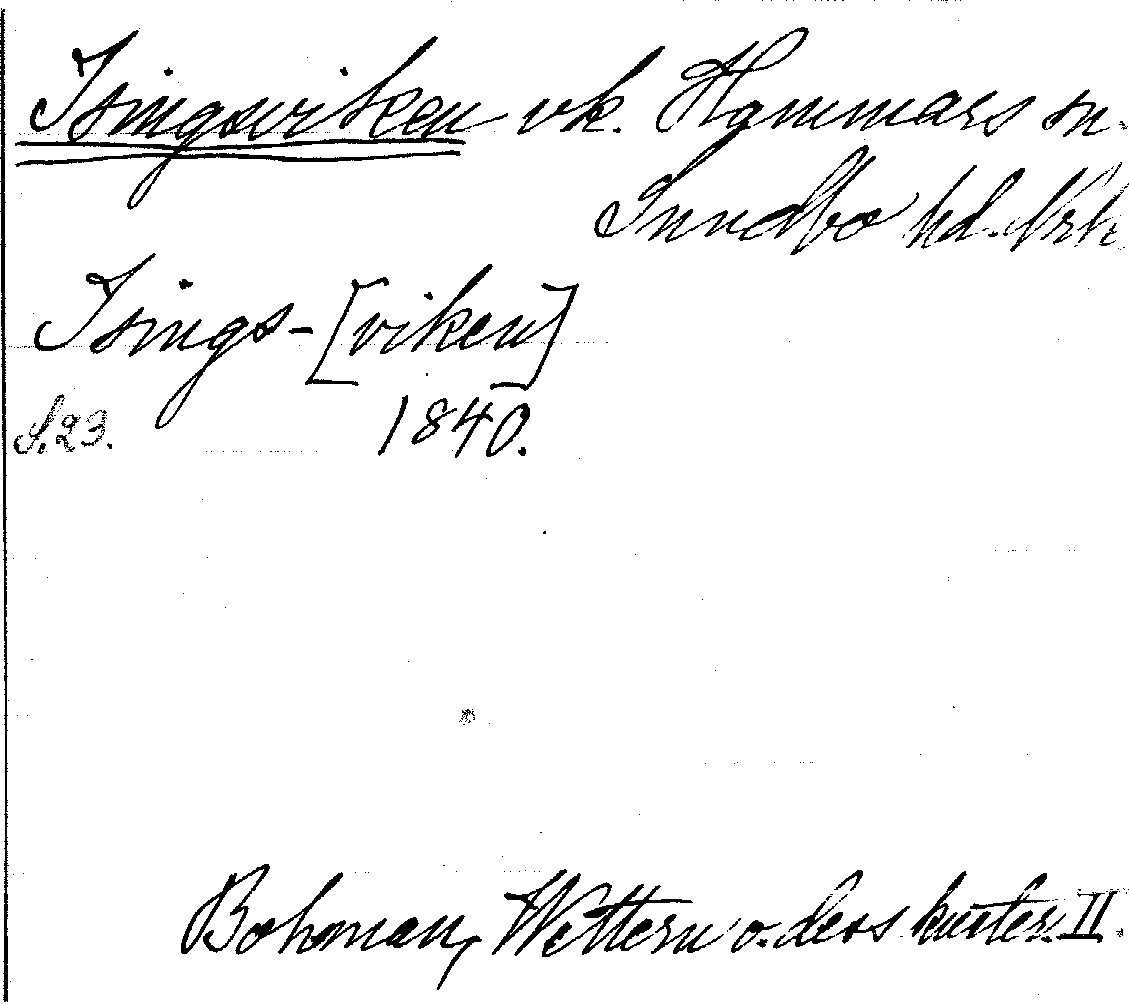 Isingsviken vk. Hammars sn.
Sundbo hd. Nrk
Isings-[viken]
S. 23. 1840.
Bohman, Wettern o. dess kuster. II.